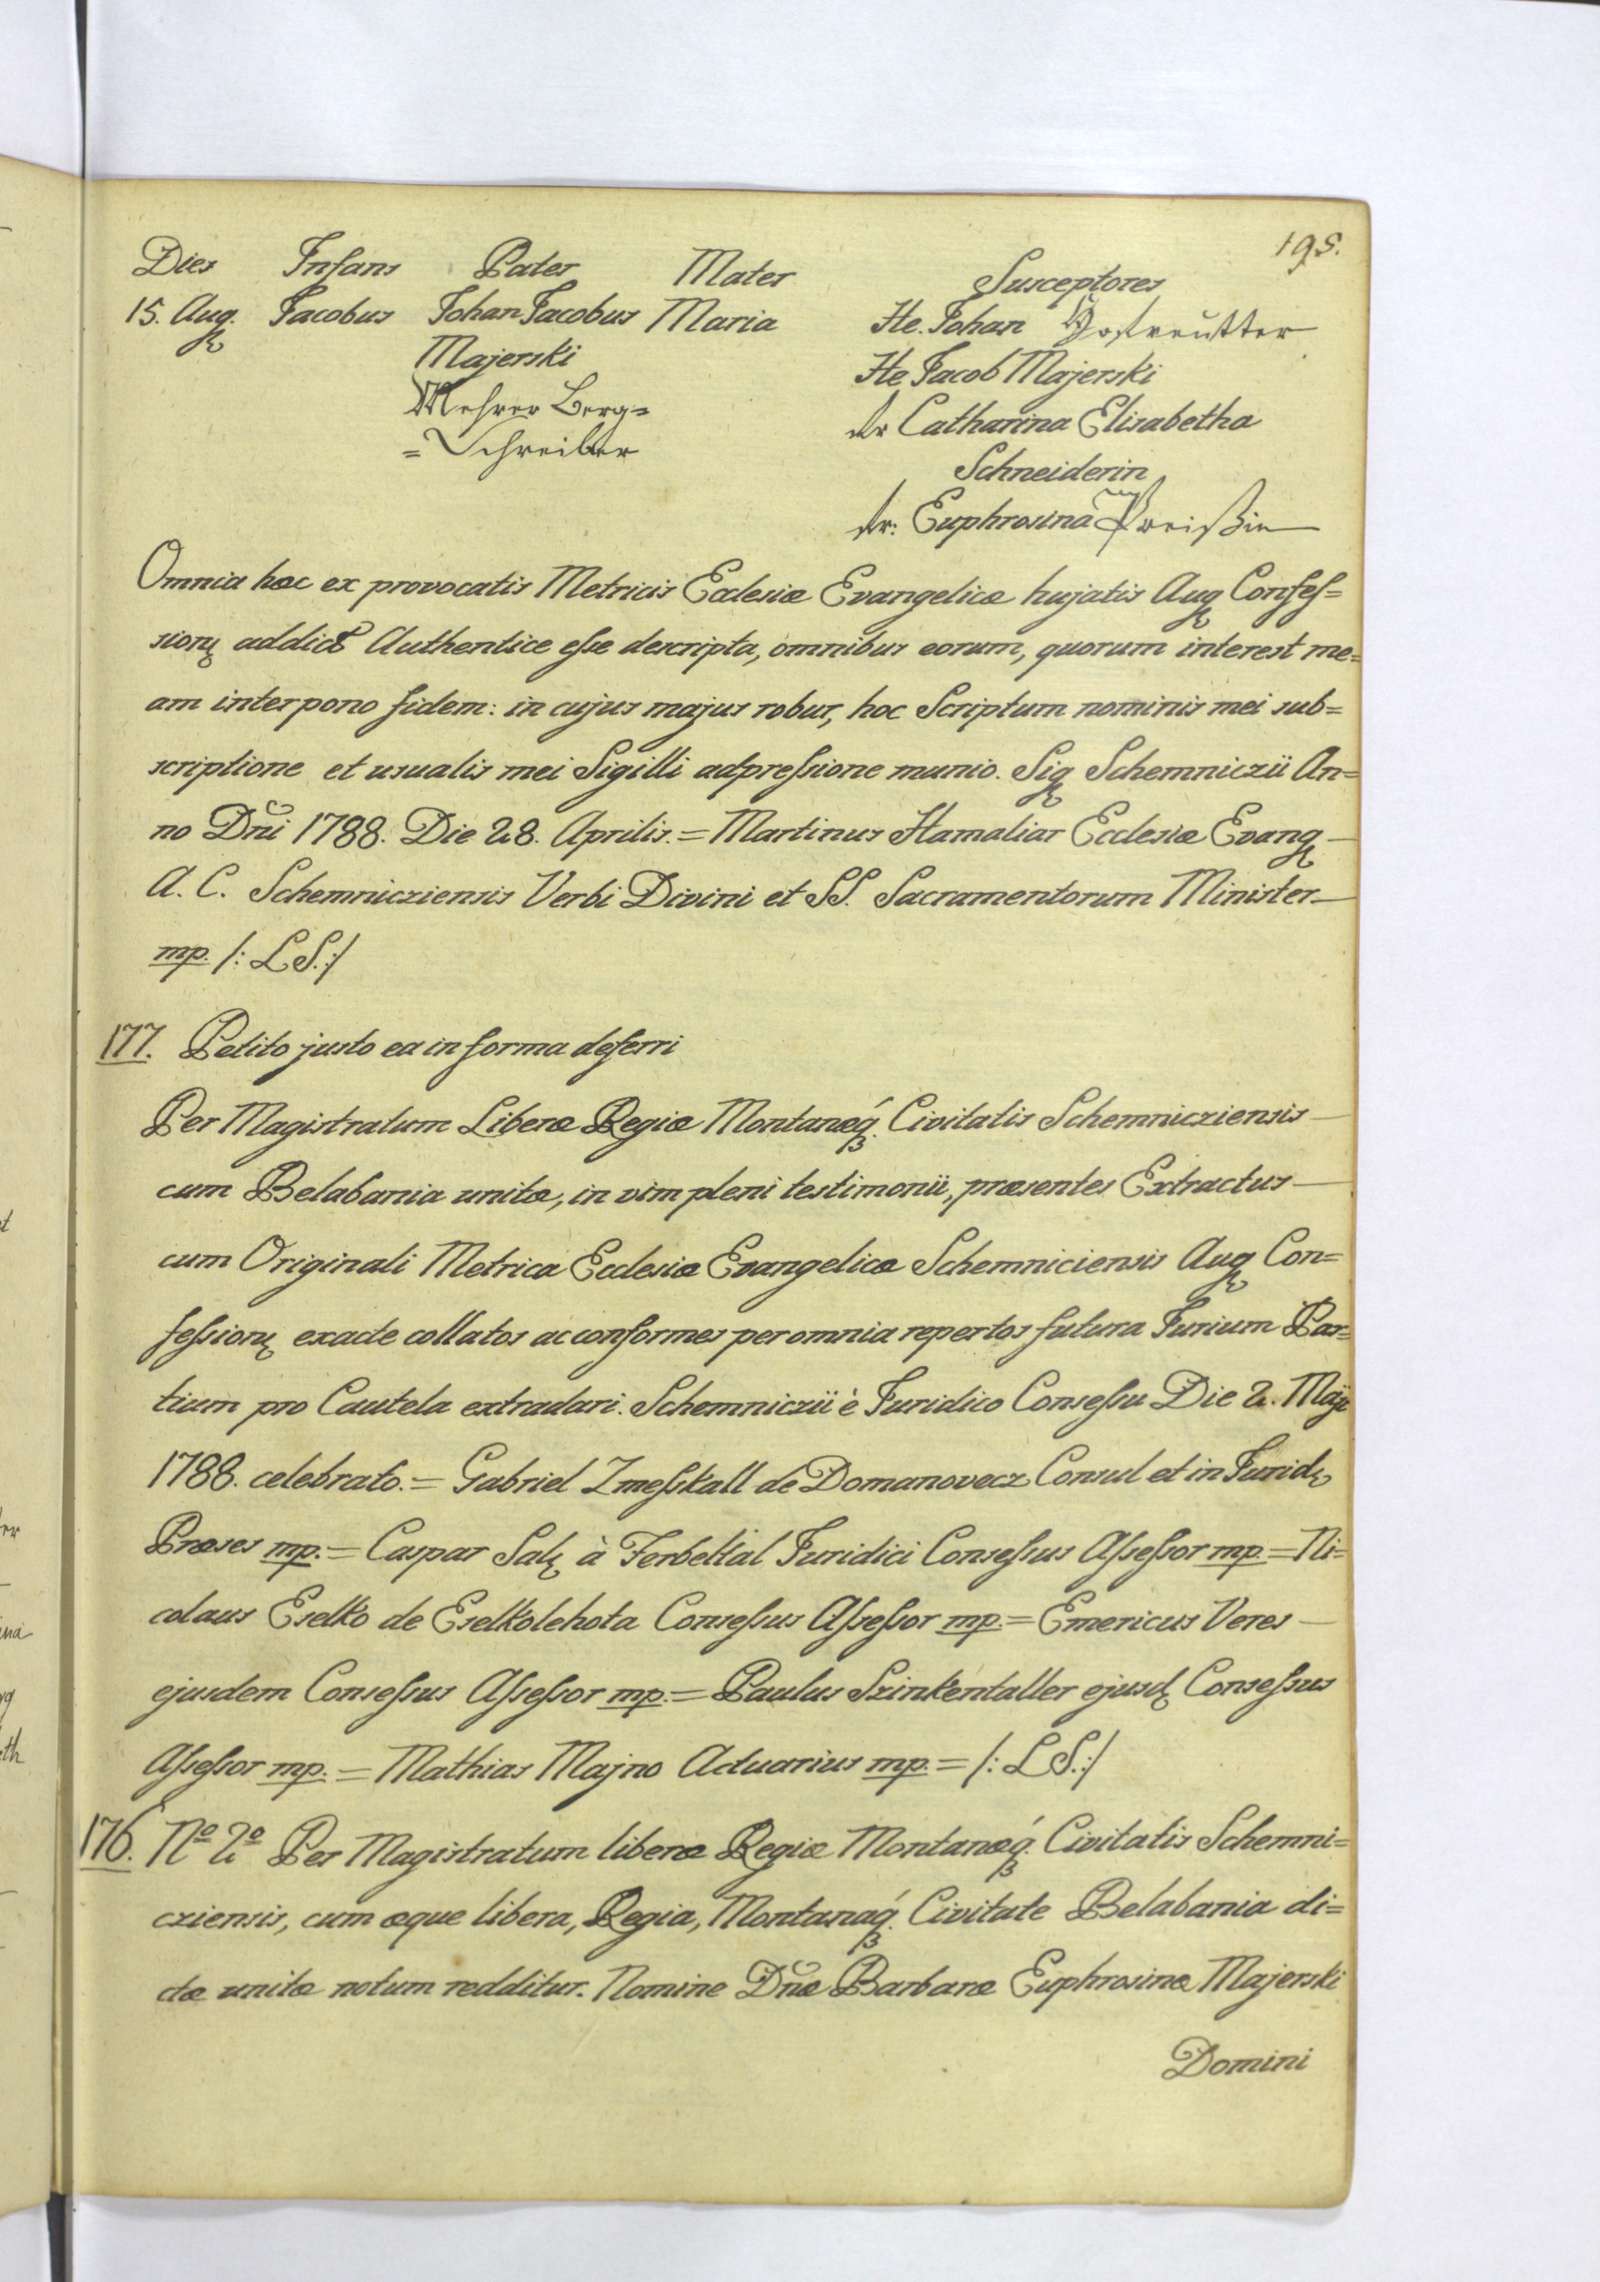 195.
Dies Infans Pater Mater Susceptores
15. Aug. Jacobus Johan Jacobus Maria He. Johan
Majerski He Jacob Majerski
Berg=
=Schreiber
Catharina Elisabetha
Schneiderin
Euphrosina Preißin
Omnia hæc ex provocatis Metricis Ecclesiæ Evangelicæ hujatis Aug Confeſ=
sion addict Authentice eſse descripta, omnibus eorum, quorum interest me=
am interpono fidem: in cujus majus robur, hoc Scriptum nominis mei sub=
scriptione et usualis mei Sigilli adpreſsione munio. Sig Schemniczii An=
no Dni 1788. Die 28. Aprilis.= Martinus Hamaliar Ecclesiæ Evang
A. C. Schemnicziensis Verbi Divini et SS. Sacramentorum Minister
mp. /: LS.:/
177. Petito justo ea in forma deferri
Per Magistratum Liberæ Regiæ Montanæq. Civitatis Schemnicziensis
cum Belabania unitæ, in vim pleni testimonii, præsentes Extractus
cum Originali Metrica Ecclesiæ Evangelicæ Schemniciensis Aug Con=
feſsion exacte collatos ac conformes per omnia repertos futura Jurium Par=
tium pro Cautela extradari. Schemniczii è Juridico Conseſsu Die 2. Maji
1788. celebrato.= Gabriel Zmeſskall de Domanovecz Consul et in Jurid
Præses mp.= Caspar Sal à Ferbettal Juridici Conseſsus Aſseſsor mp.= Ni=
colaus Eselko de Eselkolehota Conseſsus Aſseſsor mp.= Emericus Veres
ejusdem Conseſsus Aſseſsor mp.= Paulus Szinkentaller ejusd Conseſsus
Aſseſsor mp.= Mathias Majno Actuarius mp.= /: LS.:/
176. Nº 2º Per Magistratum liberæ Regiæ Montanæq. Civitatis Schemni=
cziensis, cum æque libera, Regia, Montanaq. Civitate Belabania di=
ctæ unitæ notum redditur. Nomine Dnæ Barbaræ Euphrosinæ Majerski
Domini